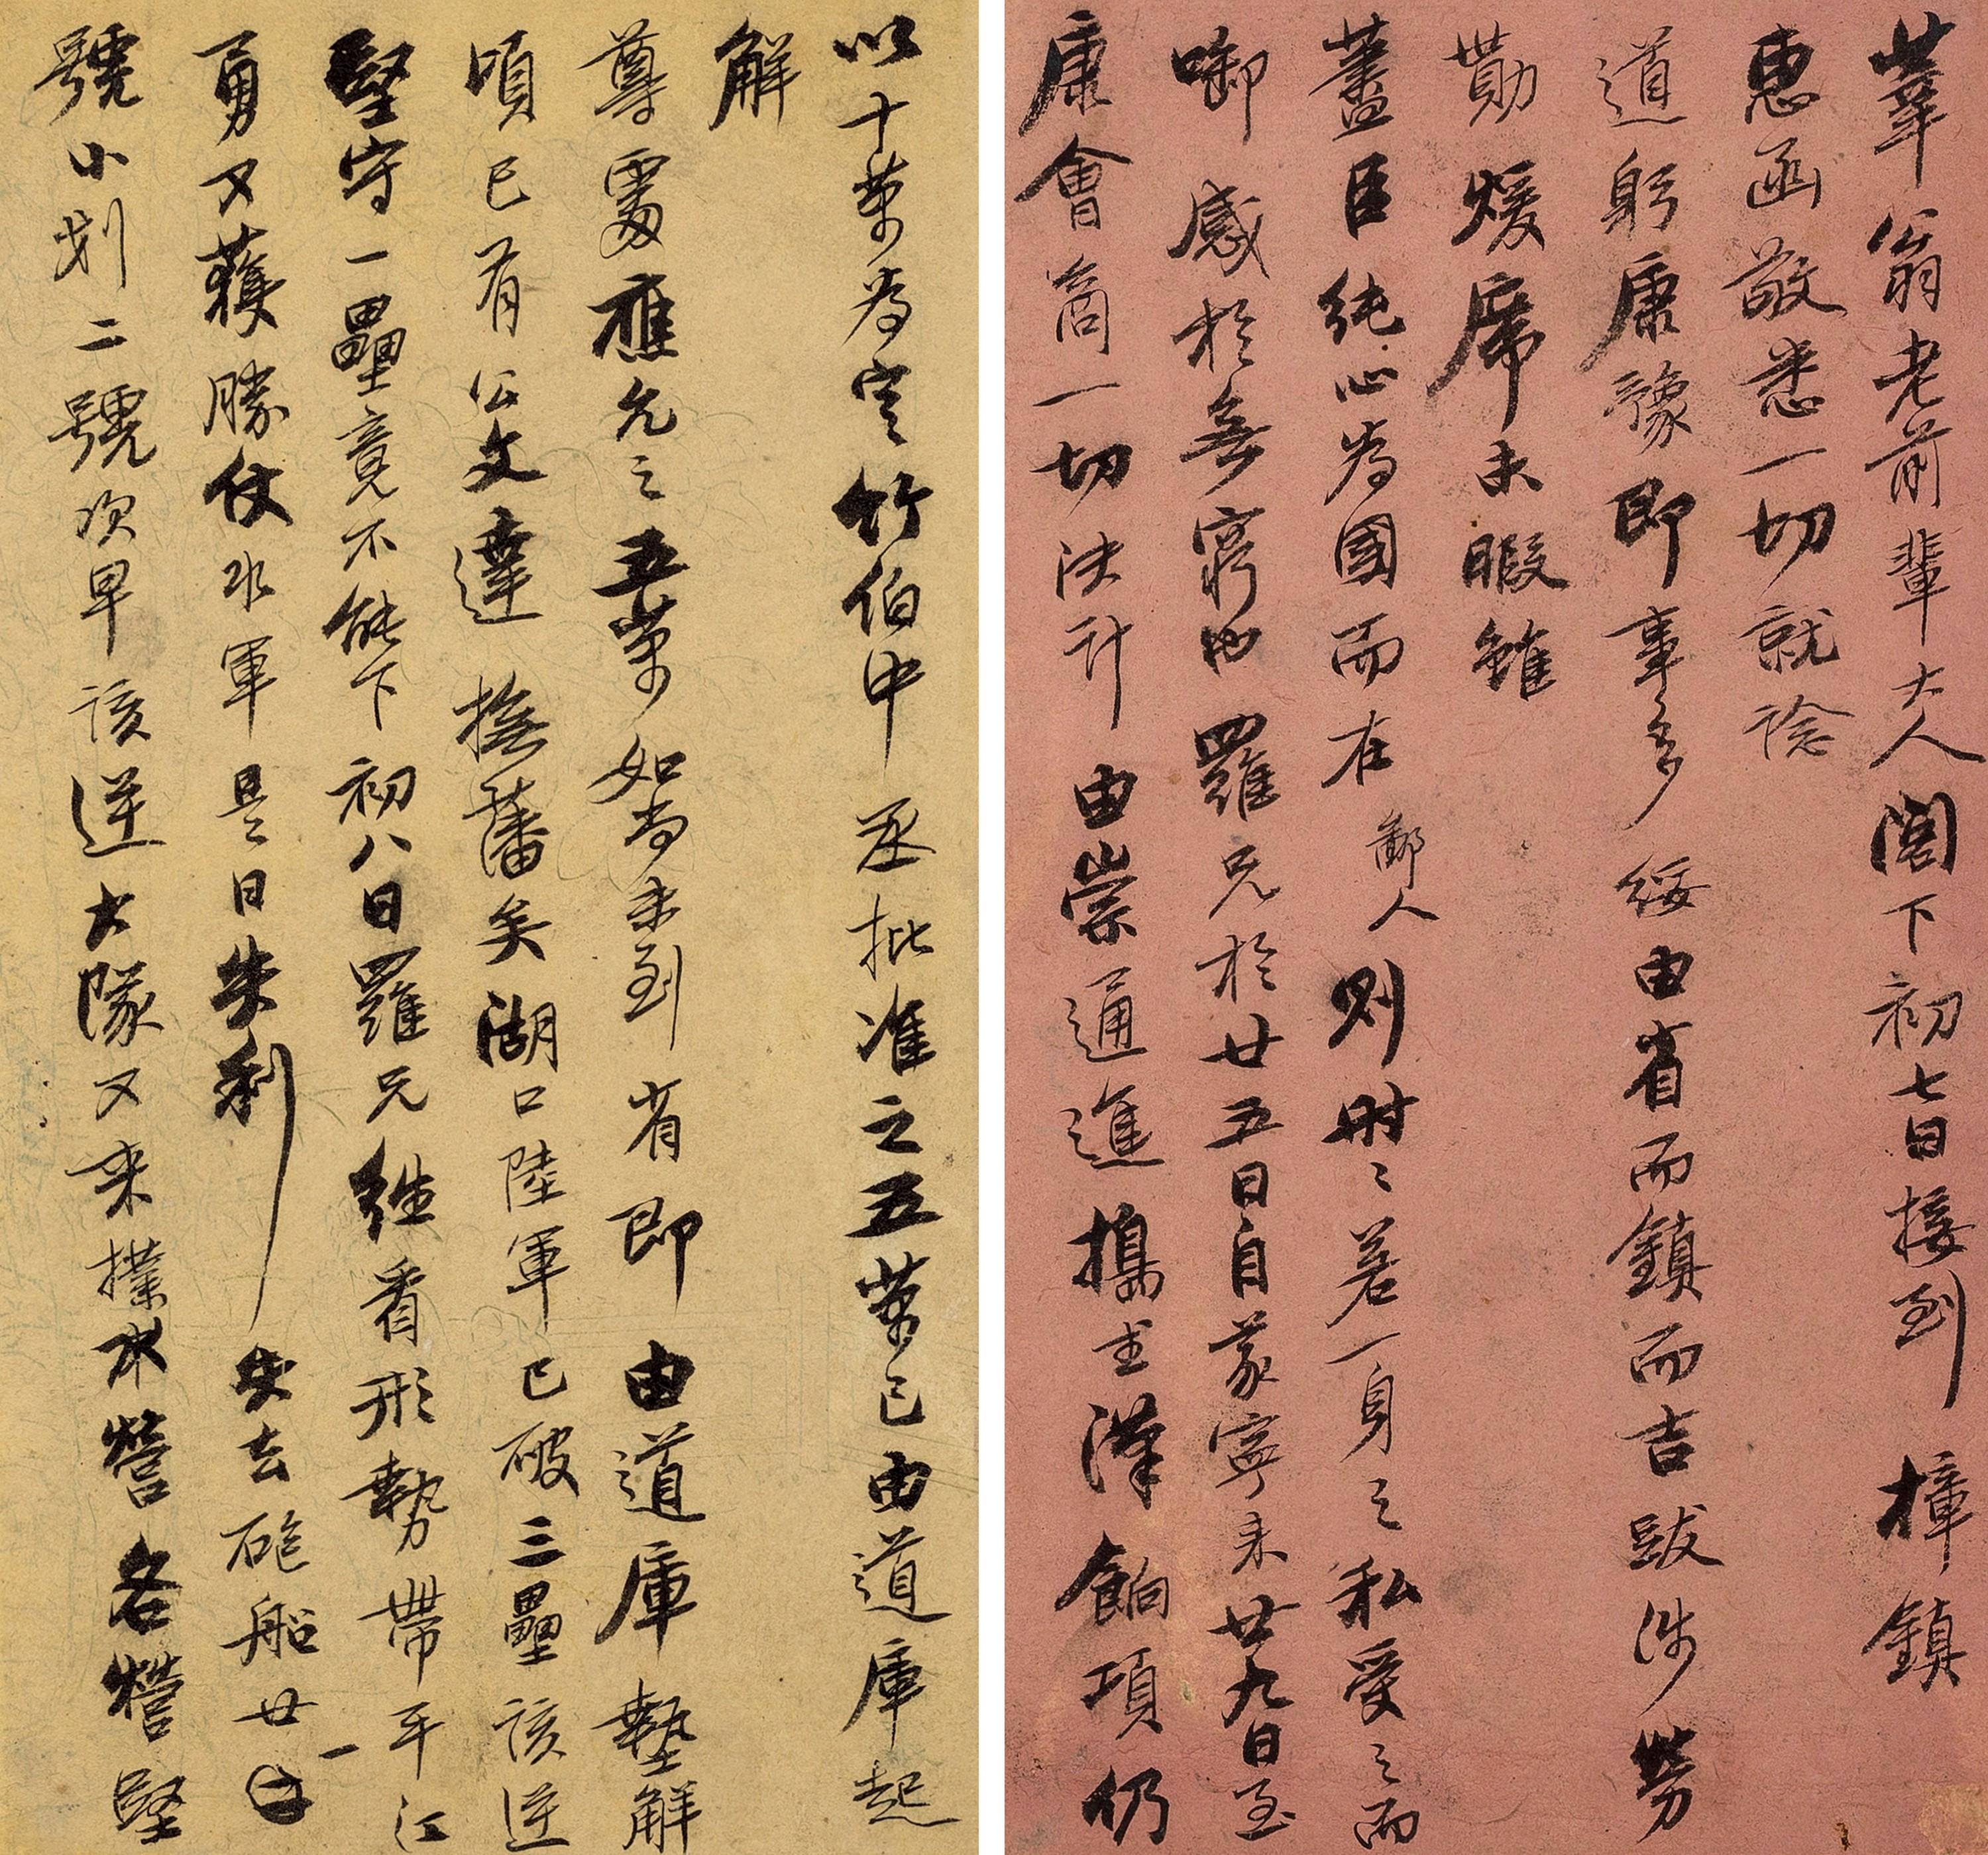 莘翁老前輩大人閣下初七日接到 樟鎮
惠函敬悉一切就諗
道躬康豫即事多 綏由省而鎮而吉跋涉勞
勩煖席未暇雖
藎臣純心為國而在鄙人則時〻若一身之私受之而
啣感於無窮也 羅兄於廿五日自義寧來廿九日至
康會商一切決計由崇通進搗武漢餉項仍
以十萬為定竹伯中丞批准之五萬已由道庫起
解
尊處應允之五萬如尚未到省即由道庫墊解
頃已有公文達 撫藩矣湖口陸軍已破三壘該逆
堅守一壘竟不能下初八日羅兄往看形勢帶平江
勇又獲勝仗水軍是日失利 失去砲船廿一
號小划二號次早該逆大隊又來撲水營各營堅